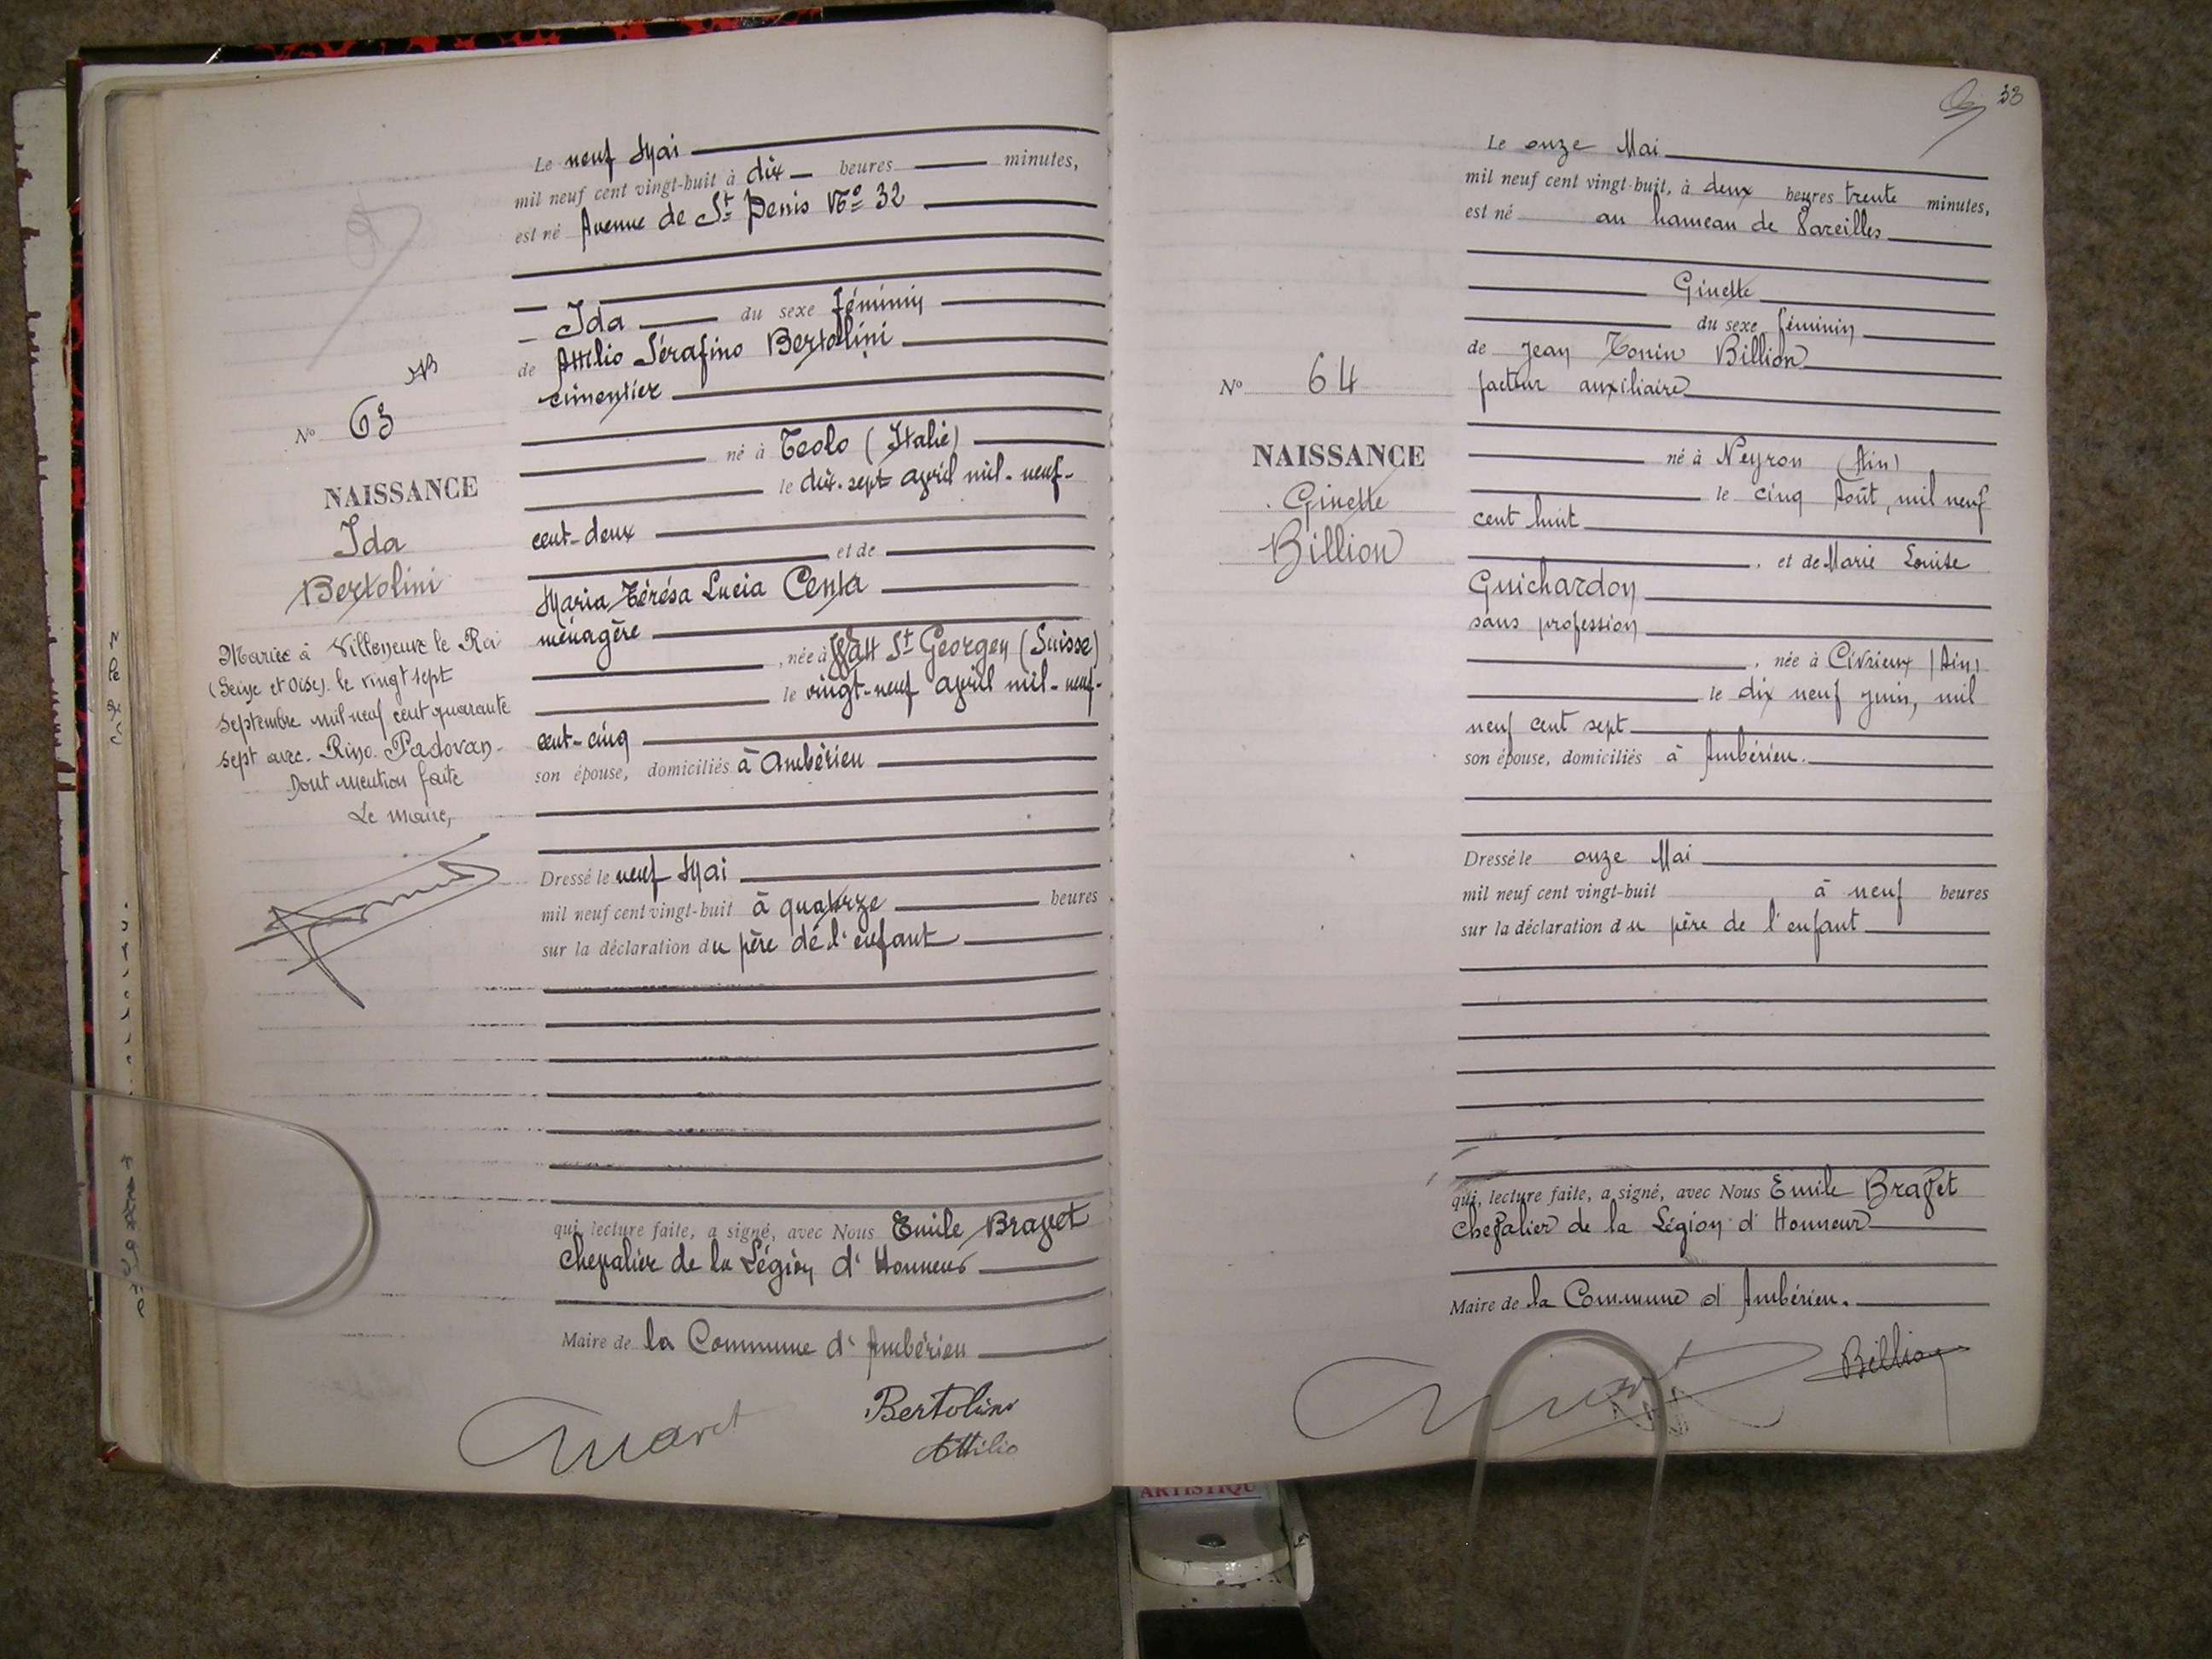 Le neuf Mai
mil neuf cent vingt-huit à dix heures minutes,
est né Avenue de St Denis No 32
Ida du sexe féminin
de Attilio Sérafino Bertolini
cimentier
né à Teolo (Italie)
le dix-sept avril mil-neuf-
cent-deux
et de
Maria Térésa Lucia Centa
ménagère
, née à Watt St Georgen (Suisse)
le vingt-neuf avril mil-neuf-
cent-cinq
son épouse, domiciliés à Ambérieu
Dressé le neuf Mai
mil neuf cent vingt-huit à quatorze heures
sur la déclaration du père de l'enfant
qui, lecture faite, a signé, avec Nous Emile Bravet
Chevalier de la Légion d'Honneur
Maire de la Commune d'Ambérieu
Bertolini
Attilio
No 63
NAISSANCE
Ida
Bertolini
Mariée à Villeneuve le Roi
(Seine et Oise). le vingt sept
septembre mil neuf cent quarante
sept avec Rino Padovan-
Dont mention faite
Le Maire,
33
Le onze Mai
mil neuf cent vingt-huit, à deux heures trente minutes,
est né au hameau de Vareilles
Ginette
du sexe féminin
de Jean Tonin Billion
facteur auxiliaire
né à Neyron (Ain)
le cinq Août, mil neuf
cent huit
, et de Marie Louise
Guichardon
sans profession
, née à Civrieux (Ain)
le dix neuf juin, mil
neuf cent sept
son épouse, domiciliés à Ambérieu.
Dressé le onze Mai
mil neuf cent vingt-huit à neuf heures
sur la déclaration du père de l'enfant
qui, lecture faite, a signé, avec Nous Emile Bravet
Chevalier de la Légion d'Honneur
Maire de la Commune d'Ambérieu.
Billion
No 64
NAISSANCE
Ginette
Billion
ARTISTIQU